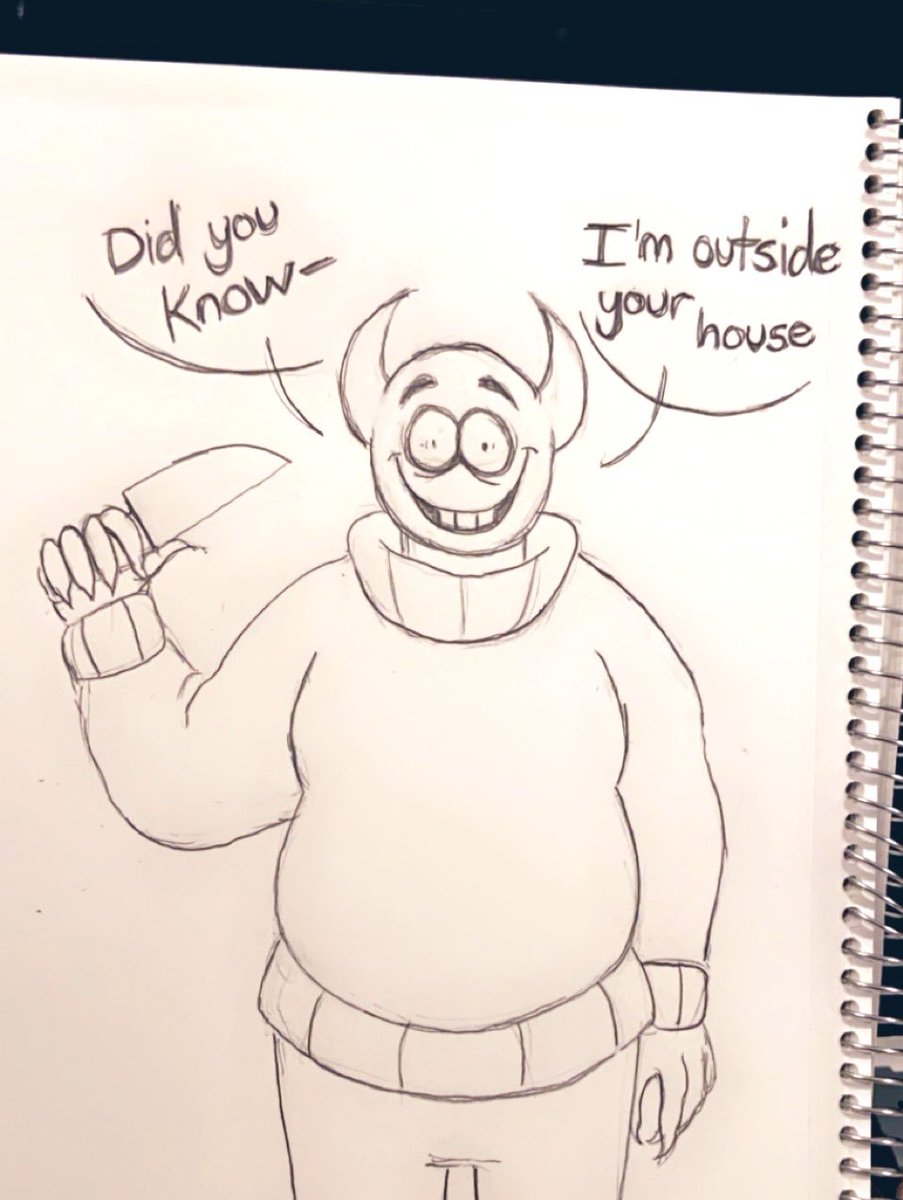 Did you
Know-
I'm outside
your house